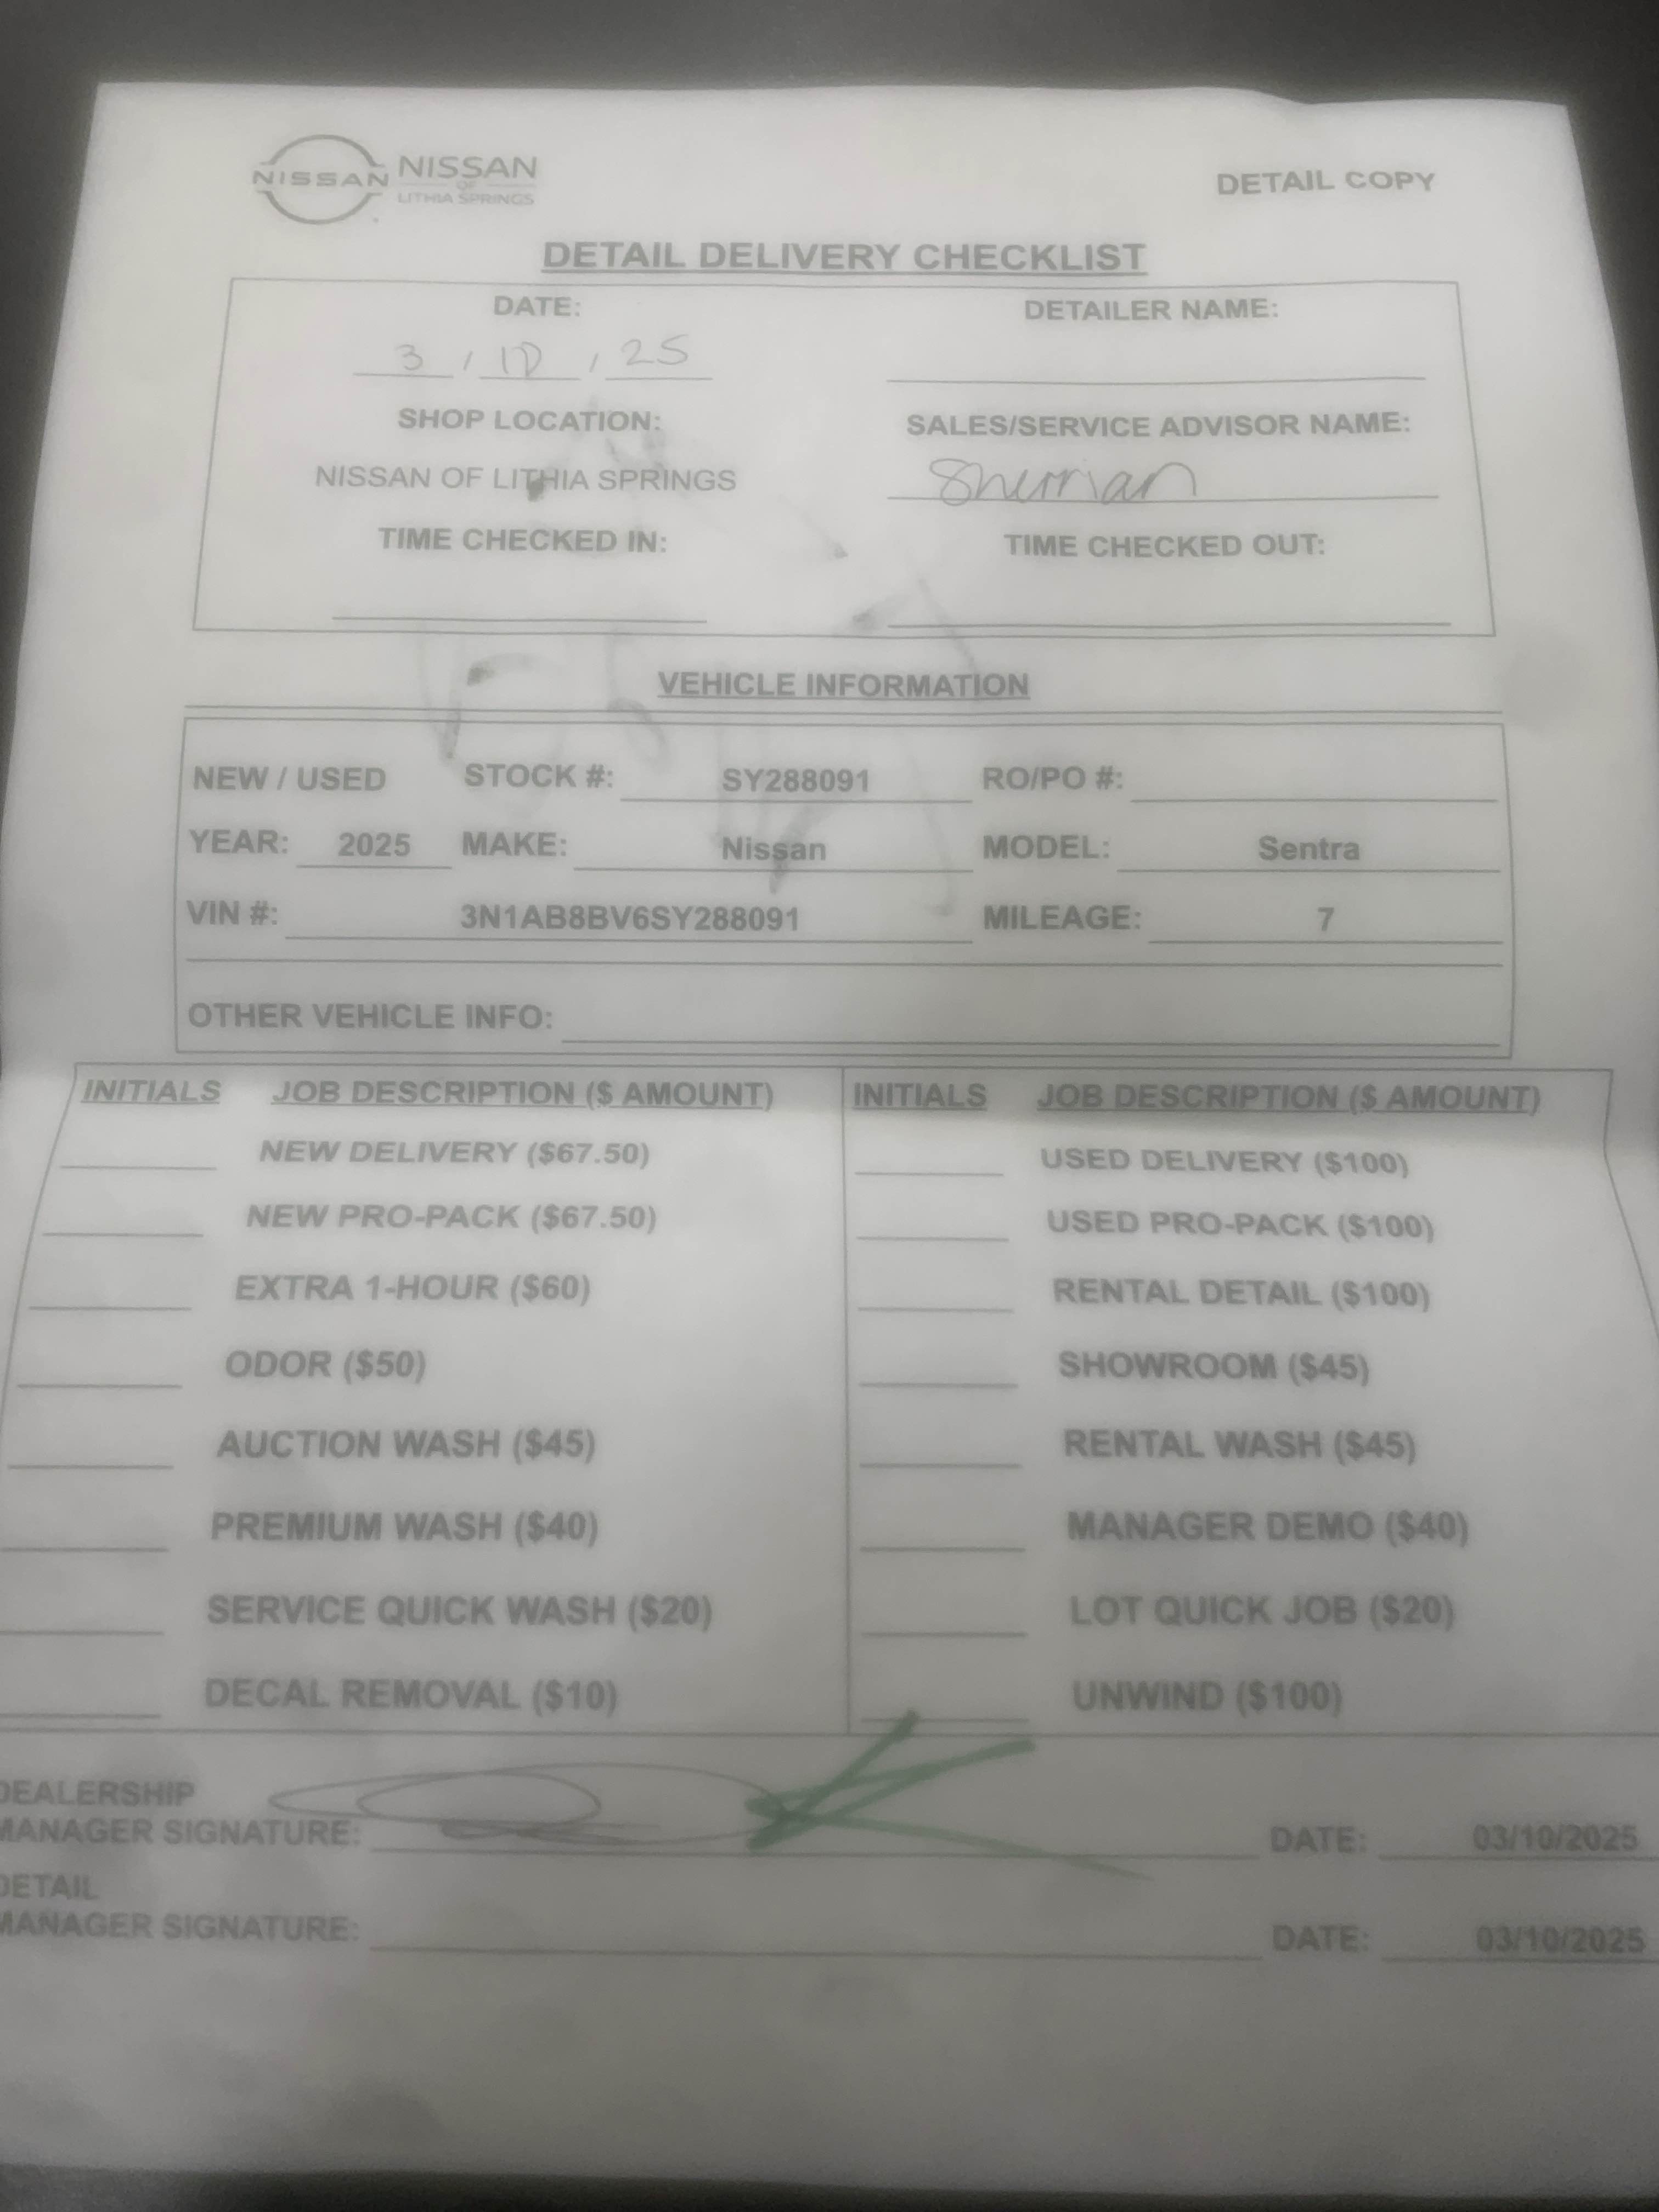 NISSAN NISSAN
OF
LITHIA SPRINGS
DETAIL COPY
DETAIL DELIVERY CHECKLIST
DATE: DETAILER NAME:
3 / 10 / 25
SHOP LOCATION: SALES/SERVICE ADVISOR NAME:
NISSAN OF LITHIA SPRINGS Sherrian
TIME CHECKED IN: TIME CHECKED OUT:
VEHICLE INFORMATION
NEW / USED STOCK #: SY288091 RO/PO #:
YEAR: 2025 MAKE: Nissan MODEL: Sentra
VIN #: 3N1AB8BV6SY288091 MILEAGE: 7
OTHER VEHICLE INFO:
INITIALS JOB DESCRIPTION ($ AMOUNT) INITIALS JOB DESCRIPTION ($ AMOUNT)
NEW DELIVERY ($67.50) USED DELIVERY ($100)
NEW PRO-PACK ($67.50) USED PRO-PACK ($100)
EXTRA 1-HOUR ($60) RENTAL DETAIL ($100)
ODOR ($50) SHOWROOM ($45)
AUCTION WASH ($45) RENTAL WASH ($45)
PREMIUM WASH ($40) MANAGER DEMO ($40)
SERVICE QUICK WASH ($20) LOT QUICK JOB ($20)
DECAL REMOVAL ($10) UNWIND ($100)
DEALERSHIP
MANAGER SIGNATURE: DATE: 03/10/2025
DETAIL
MANAGER SIGNATURE: DATE: 03/10/2025